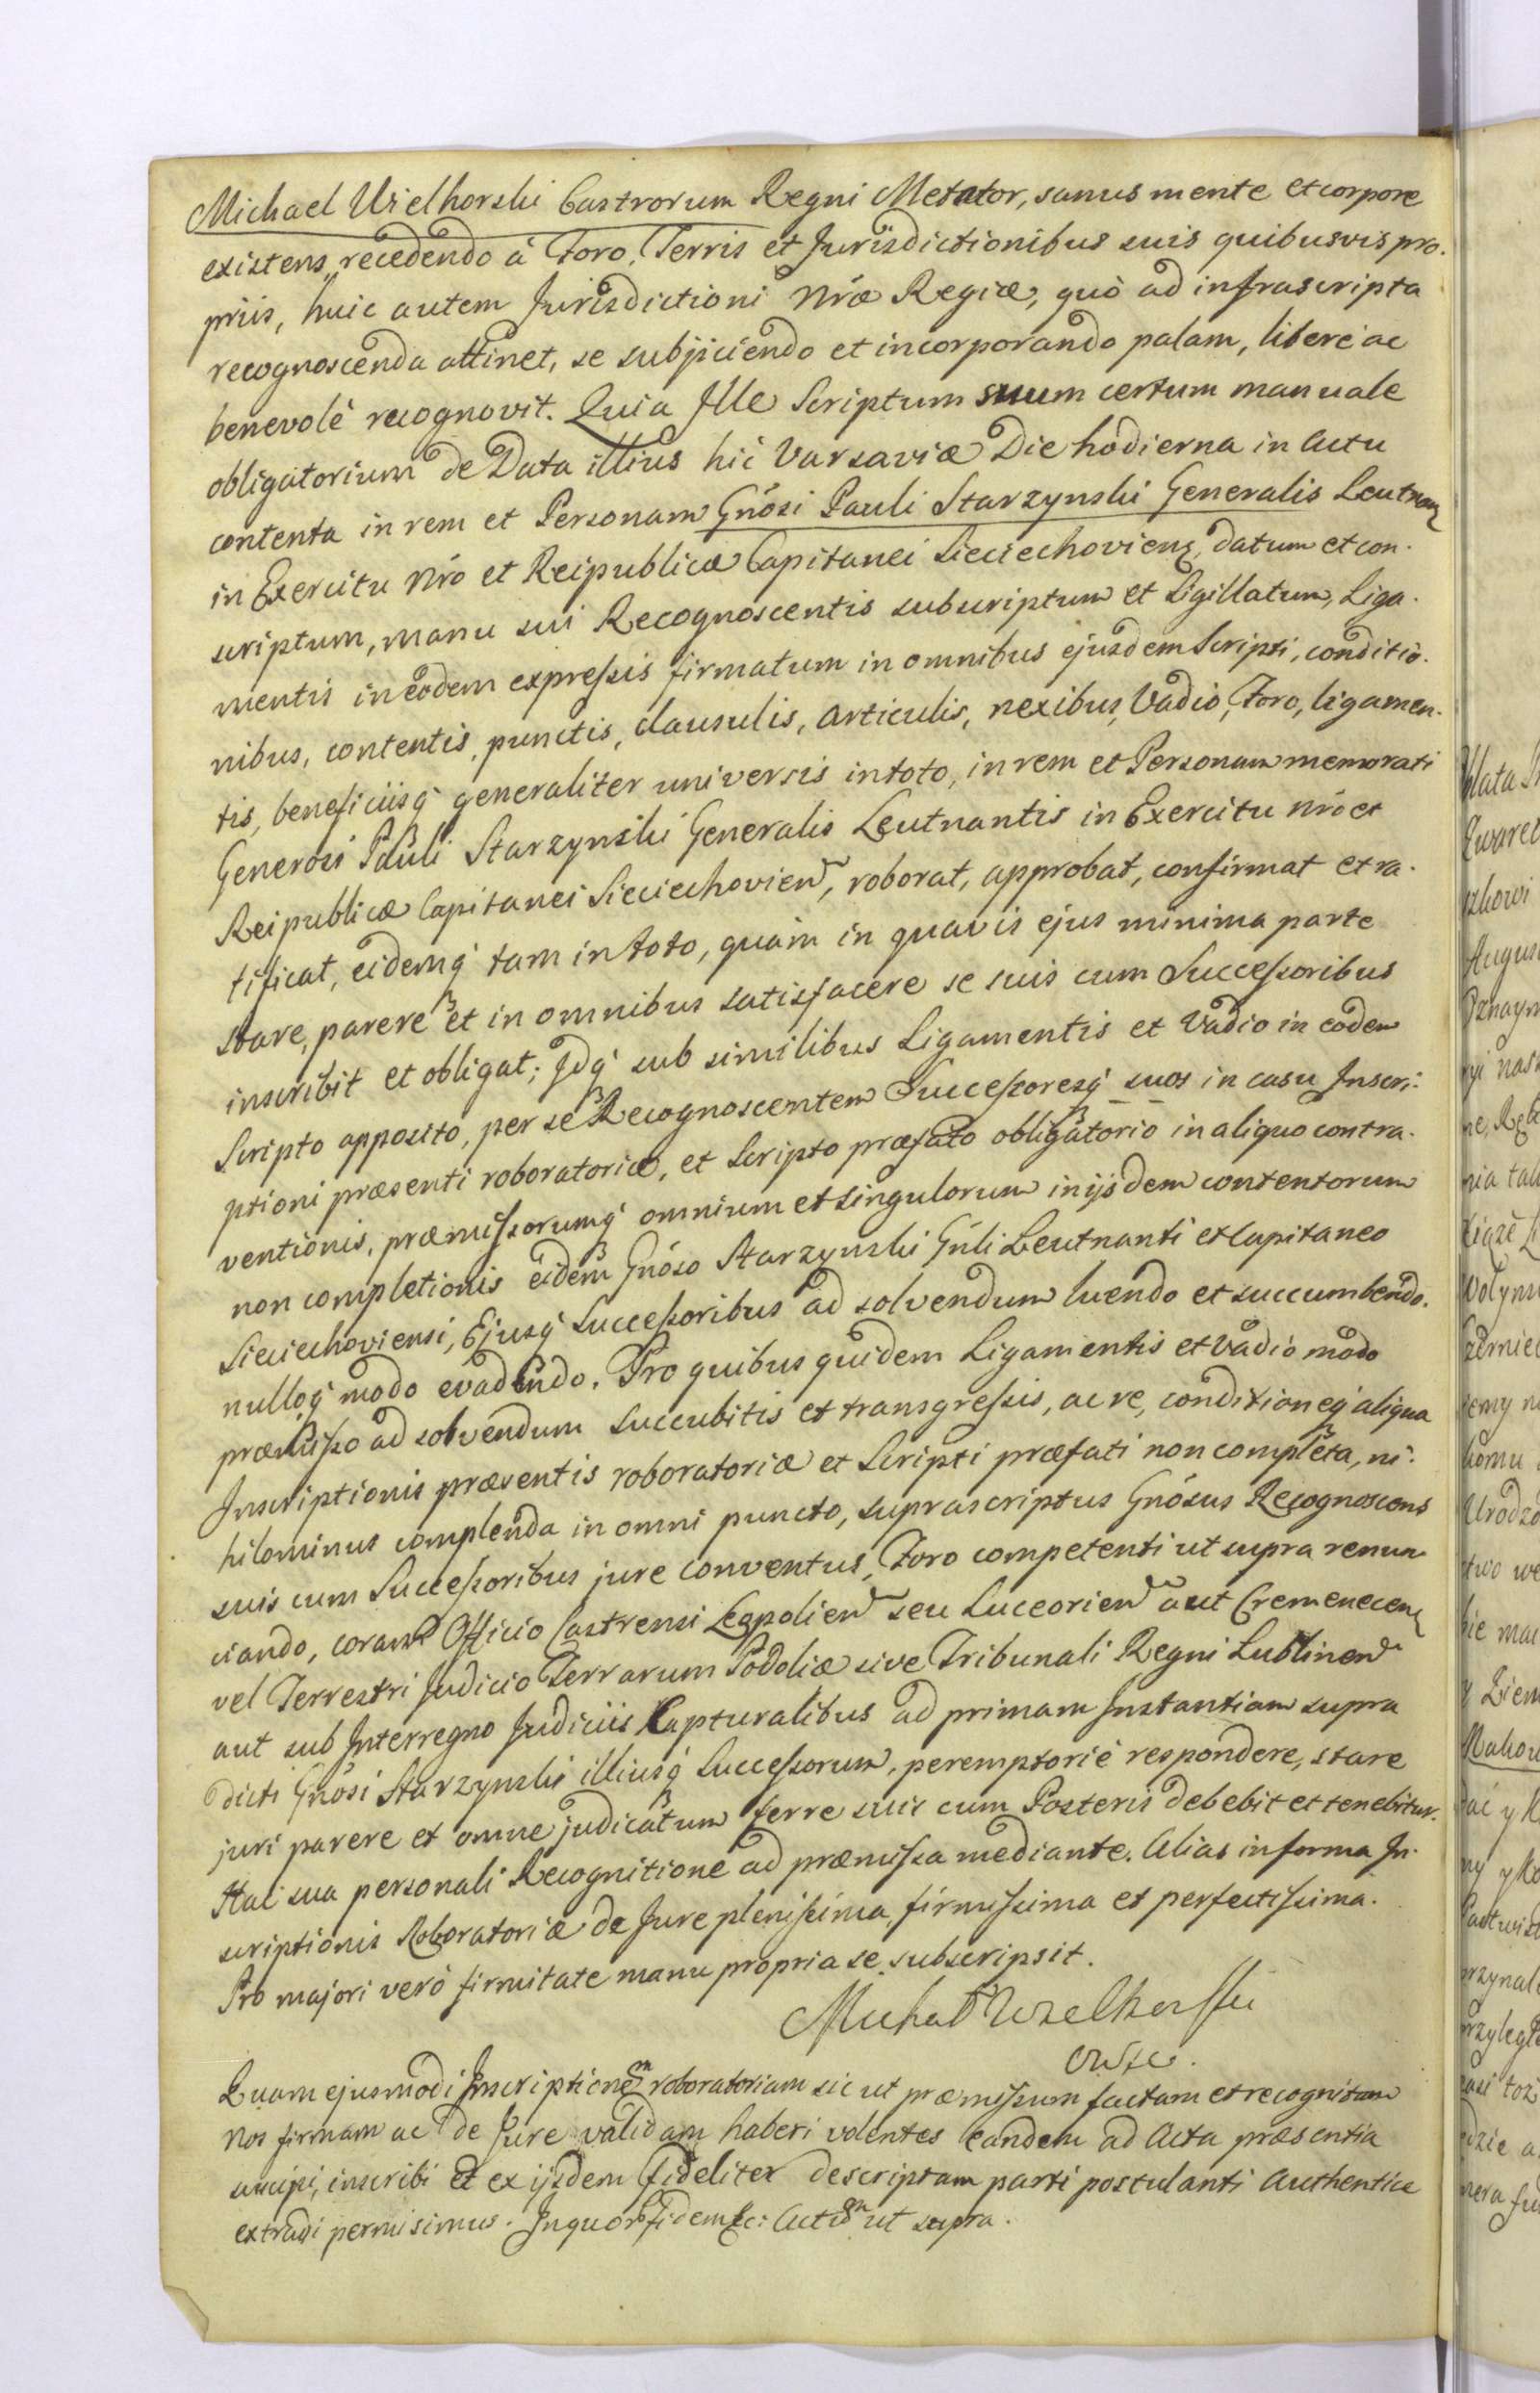 Michael Wielhorski Castrorum Regni Metator, sanus mente et corpore
existens, recedendo à Foro, Terris et Jurisdictionibus suis quibusvis pro-
priis, huic autem Jurisdictioni Nr̃æ Regiæ, quò ad infrascripta
recognoscenda attinet, se subjiciendo et incorporando palam, liberè ac
benevolè recognovit. Quia Ille Scriptum suum certum manuale
obligatorium de Data illius hic Varsaviæ Die hodierna in Actu
contenta in rem et Personam Gñosi Pauli Starzynski Generalis Leutnan
in Exercitu Nr̃o et Reipublicæ Capitanei Sieciechovien, datum et con-
scriptum, manu sui Recognoscentis subscriptum et Sigillatum, Liga-
mentis in eodem expressis firmatum in omnibus ejusdem Scripti, conditio-
nibus, contentis, punctis, clausulis, articulis, nexibus, Vadio, Foro, ligamen-
tis, beneficiisq́ generaliter universis in toto, in rem et Personam memorati
Generosi Pauli Starzynski Generalis Leutnantis in Exercitu Nr̃o et
Reipublicæ Capitanei Sieciechovien, roborat, approbat, confirmat et ra-
tificat, eidemq́ tam in toto, quam in quavis ejus minima parte
stare, parere et in omnibus satisfacere se suis cum Successoribus
inscribit et obligat; Idq́ sub similibus Ligamentis et Vadio in eodem
Scripto apposito, per se Recognoscentem Successoresq́ suos in casu Inscri-
ptioni præsenti roboratoriæ, et Scripto præfato obligatorio in aliquo contra-
ventionis, præmissorumq́ omnium et singulorum in ijsdem contentorum
non completionis eidem Gñoso Starzynski Gñli Leutnanti et Capitaneo
Sieciechoviensi, Ejusq́ Successoribus ad solvendum luendo et succumbendo.
nulloq́ modo evadendo. Pro quibus quidem Ligamentis et Vadio modo
præmisso ad solvendum succubitis et transgressis, ac re, conditioneq́ aliqua
Inscriptionis præsentis roboratoriæ et Scripti præfati non completa, ni-
hilominus complenda in omni puncto, suprascriptus Gñosus Recognoscens
suis cum Successoribus jure conventus, Foro competenti ut supra renun
ciando, coram Officio Castrensi Leopolien seu Luceorien aut Cremenecen
vel Terrestri Judicio Terrarum Podoliæ sive Tribunali Regni Lublinen
aut sub Interregno Judiciis Capturalibus ad primam Instantiam supra
dicti Gñosi Starzynski illiusq́ Successorum, peremptoriè respondere, stare
juri parere et omne judicatum ferre suis cum Posteris debebit et tenebitur.
Hac sua personali Recognitione ad præmissa mediante. Alias in forma In-
scriptionis Roboratoriæ de Jure plenissima, firmissima et perfectissima.
Pro majori verò firmitate manu propria se subscripsit.
Michał Wielhorski
Quam ejusmodi Inscriptionem roboratoriam sic ut præmissum factam et recognitam
Nos firmam ac de Jure validam haberi volentes eandem ad Acta præsentia
suscipi, inscribi et ex ijsdem fideliter descriptam parti postulanti authentice
extradi permisimus. In quor̃ fidem &c: Actum ut supra.